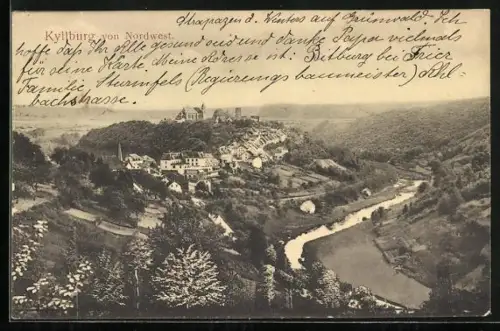 Kyllburg von Nordwest.
Strapazen d. Winters auf Grünwald. Ich
hoffe daß Ihr Alle gesund seid und danke Papa vielmals
für seine Karte. Meine Adresse ist: Bitburg bei Trier
Familie (Regierungsbaumeister) Schl-
bachstrasse.